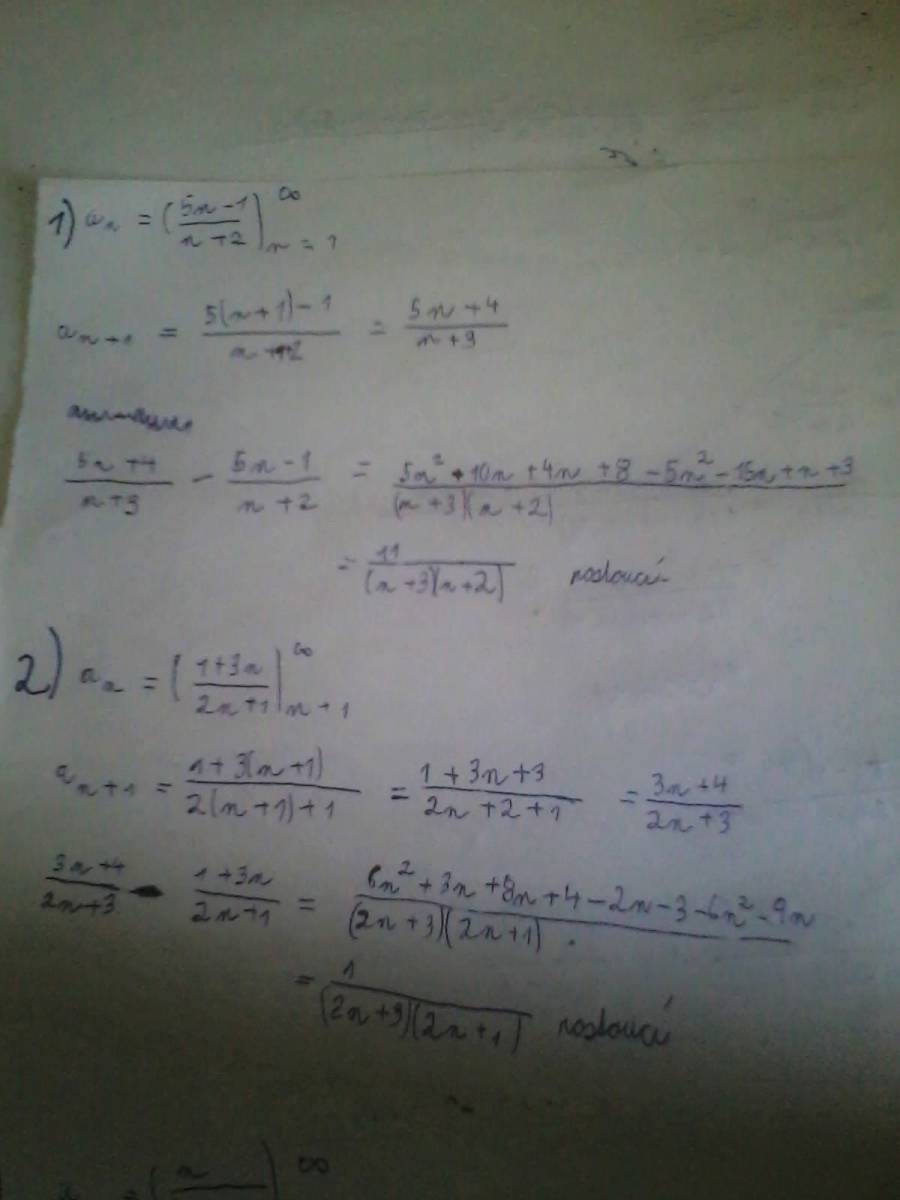 1) aₙ = ((5n-1)/(n+2))^∞ n=1
aₙ₊₁ = (5(n+1)-1)/(n+1+2) = (5n+4)/(n+3)
(5n+4)/(n+3) - (5n-1)/(n+2) = (5n²+10n+4n+8-5n²-15n+n+3)/((n+3)(n+2))
= 11/((n+3)(n+2)) rostoucí
2) aₙ = ((1+3n)/(2n+1))^∞ n+1
aₙ₊₁ = (1+3(n+1))/(2(n+1)+1) = (1+3n+3)/(2n+2+1) = (3n+4)/(2n+3)
(3n+4)/(2n+3) - (1+3n)/(2n+1) = (6n²+3n+8n+4-2n-3-6n²-9n)/((2n+3)(2n+1))
= 1/((2n+3)(2n+1)) rostoucí